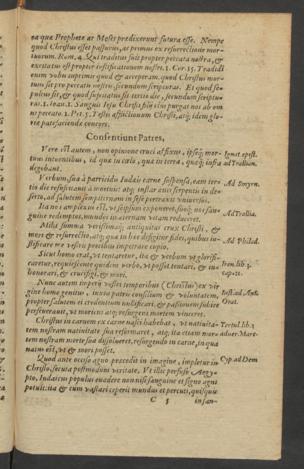 ea quæ Prophetæ ac Moses prædixerunt futura esse. Nempe
quod Christus esset passurus, ac primus ex resurrectione mor-
tuorum. Rom. 4. Qui traditus fuit propter peccata nostra, &
excitatus est propter iustificationem nostri. 1. Cor. 15. Tradidi
enim vobis in primis quod & acceperam. quod Christus mor-
tuus sit pro peccatis nostris, secundum scripturas. Et quod se-
pultus sit, & quod suscitatus sit tertio die, secundum scriptu-
ras. 1. Ioan. 1. Sanguis Iesu Christi filij eius purgat nos ab om
ni peccato. 1. Pet. 5. Testis afflictionum Christi, atq; idem glo-
riæ patefaciendæ consors.
Consentiunt Patres,
Vere est autem, non opinione cruci affixus, ipsisq; mor-
tuus intuentibus, id qua in cælo, qua in terra, quaq; infra
degentibus.
Ignat. epist.
ad Trallian.
Verbum, sua à parricida Iudæis carne suspensa, eam ter-
tio die resuscitauit à mortuis: atq; instar ænei serpentis in de-
serto, ad salutem sempiternam in sese pertraxit vniuersos.
Ad Smyrn.
Ita nos amplexus est, vt seipsum exponeret, suoq; nos san-
guine redemptos, mundos in æternum vitam redderet.
Ad Trallia.
Mihi summa verissimaq; antiquitas crux Christi, &
mors & resurrectio eius, atq; qua in hoc desigitur fides, quibus iu-
stificare me vestris precibus impetrare cupio.
Ad Philad.
Sicut homo erat, vt tentaretur, ita & verbum vt glorifi-
caretur, requiescente quidem verbo, vt posset tentari, & in-
honorari, & crucifigi, & mori.
Iren. lib. 3.
cap. 21.
Nunc autem impijs vestri temporibus (Christus) ex vir
gine homo genitus, iuxta patris consilium & voluntatem,
propter salutem ei credentium nullificari, & passionem subire
perseuerauit, vt moriens atq; resurgens mortem vinceret.
Iust. ad Ant.
Orat.
Christus in carnem ex carne nasci habebat, vt natiuita-
tem nostram natiuitate sua reformaret, atq; ita etiam mor-
tem nostram morte sua dissolueret, resurgendo in carne, in qua
natus est, vt & mori posset.
Tertul. lib. 3
aduer. Marc.
Quod ante occiso agno præcedit in imagine, impletur in
Christo, secuta postmodum veritate. Vt illic percussa Aegy-
pto, Iudaicus populus euadere non nisi sanguine et signo agni
potuit: ita & cum vastari ceperit mundus et percuti, quisquis
Cyp. ad Dem
C 5
in san-